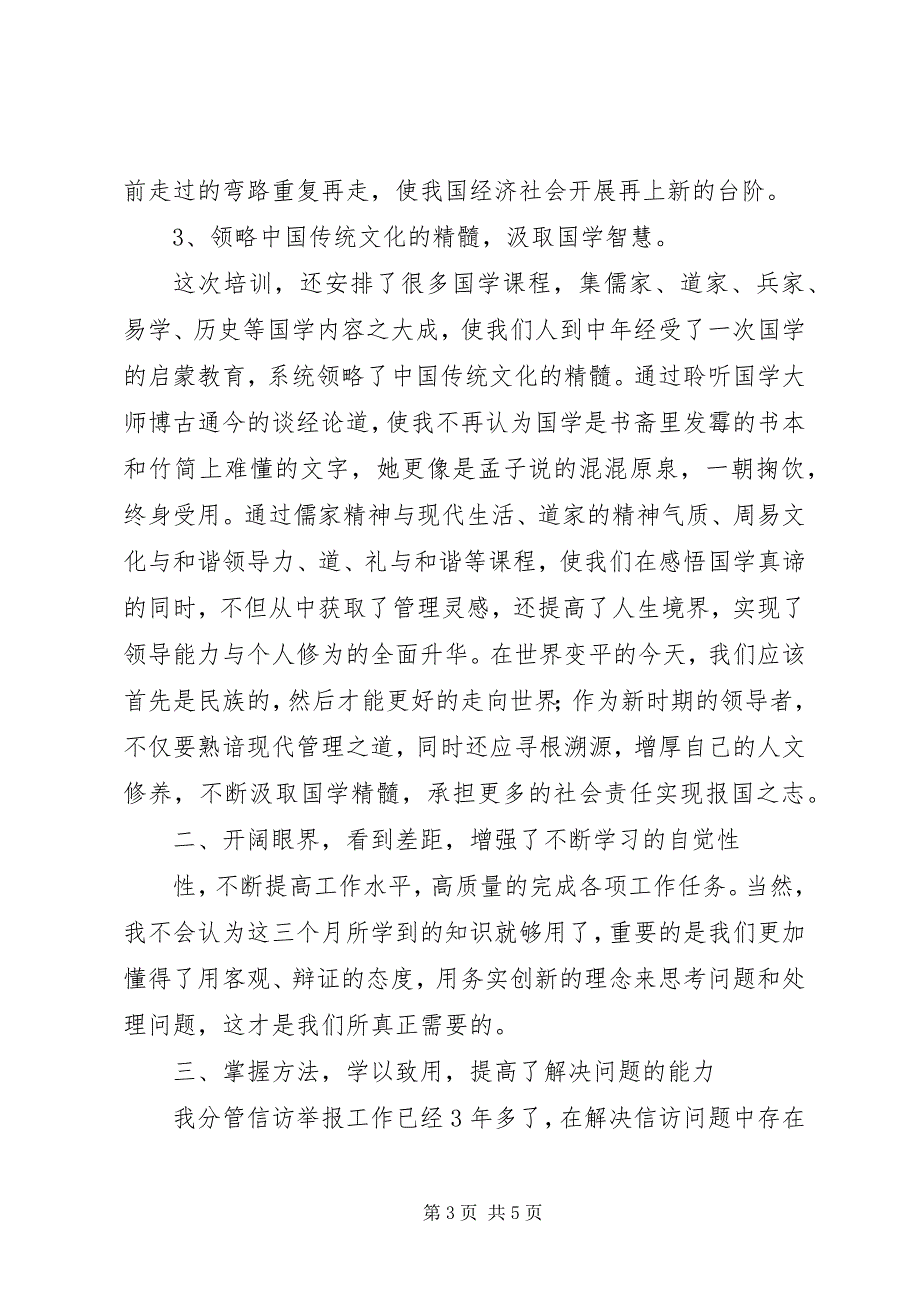 前走过的弯路重复再走，使我国经济社会开展再上新的台阶。
3、领略中国传统文化的精髓，汲取国学智慧。
这次培训，还安排了很多国学课程，集儒家、道家、兵家、
易学、历史等国学内容之大成，使我们人到中年经受了一次国学
的启蒙教育，系统领略了中国传统文化的精髓。通过聆听国学大
师博古通今的谈经论道，使我不再认为国学是书斋里发霉的书本
和竹简上难懂的文字，她更像是孟子说的混混原泉，一朝掬饮，
终身受用。通过儒家精神与现代生活、道家的精神气质、周易文
化与和谐领导力、道、礼与和谐等课程，使我们在感悟国学真谛
的同时，不但从中获取了管理灵感，还提高了人生境界，实现了
领导能力与个人修为的全面升华。在世界变平的今天，我们应该
首先是民族的，然后才能更好的走向世界；作为新时期的领导者，
不仅要熟谙现代管理之道，同时还应寻根溯源，增厚自己的人文
修养，不断汲取国学精髓，承担更多的社会责任实现报国之志。
二、开阔眼界，看到差距，增强了不断学习的自觉性
性，不断提高工作水平，高质量的完成各项工作任务。当然，
我不会认为这三个月所学到的知识就够用了，重要的是我们更加
懂得了用客观、辩证的态度，用务实创新的理念来思考问题和处
理问题，这才是我们所真正需要的。
三、掌握方法，学以致用，提高了解决问题的能力
我分管信访举报工作已经3年多了，在解决信访问题中存在
第3页 共5页